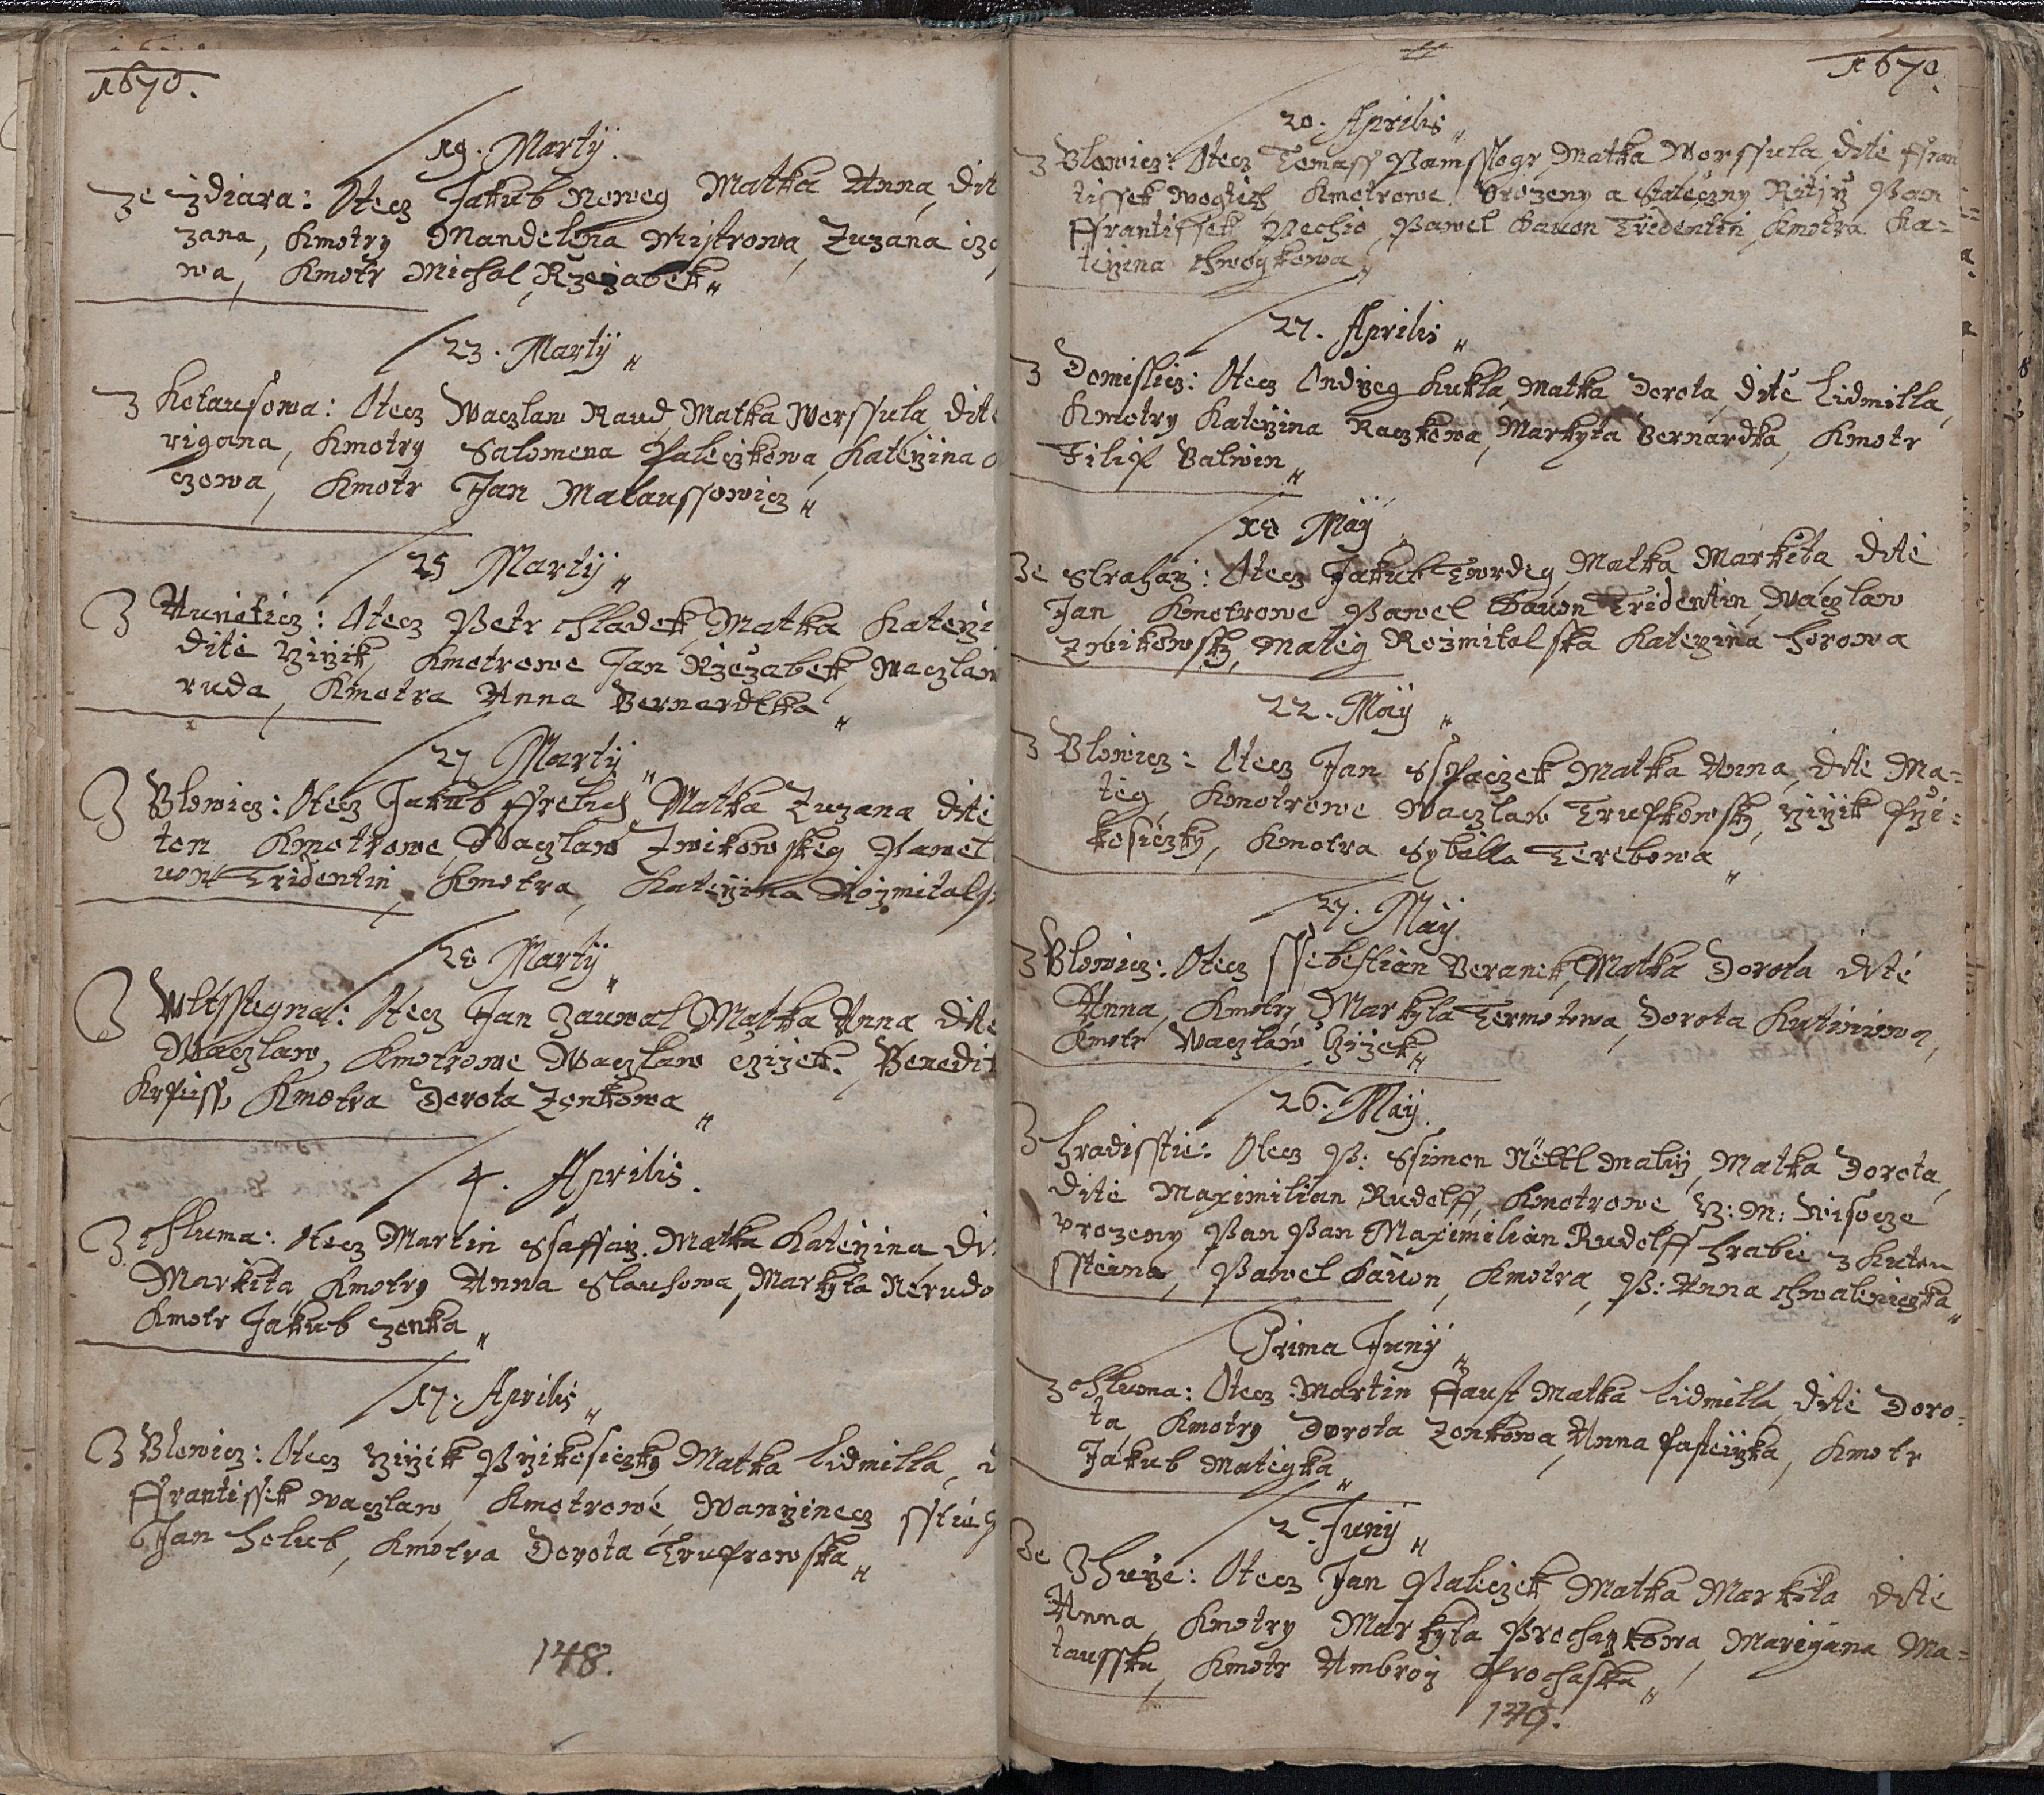 1670.
19. Martij.
Ze Zdiara: Otecz Jakub Noweg Matka Anna, dit
zana, Kmotry Mandelena Mistrowa, Zuzana
wa, Kmotr Michal Rzezabek
23. Martij
Z Kotausowa: Otecz Waczlaw Raud, Matka Worssula, dite
rigana, Kmotry Salomena Paleczkowa, Katerzina
czowa, Kmotr Jan Mataussowicz
25 Martij
Z Uunieticz: Otecz Petr Chladek, Matka Katerzi
dite Rzirzik, Kmotrowe Jan Rzezabek, Waczlaw
ruda, Kmotra Anna Bernardtka
27 Martij
Z Blowicz: Otecz Jakub Ffrelich Matka Zuzana dite
ton Kmotrowe, Waczlaw Zwikowskeg Pawel
uon Tridentin, Kmotra, Katerzina Rozmitals
28 Martij
Z Wltsstegna: Otecz Jan Zauwal Matka Anna dite
Waczlaw, Kmotrowe Waczlaw Czizek. Benedit
Krpiss, Kmotra Dorota Zenkowa
4. Aprilis.
Z Chluma: Otecz Martin Ssaffarz. Matka Katerzina, di
Markita, Kmotry Anna Slauhowa, Markyta Nerudo
Kmotr Jakub Zenka
17. Aprilis
Z Blowicz: Otecz Rzirzik Przikosiczky Matka Lidmilla,
Ffrantissek Waczlaw, Kmotrowe, Wawrzinecz
Jan Holub, Kmotra Dorota
148.
1670.
20. Aprilis
Z Blowicz: Otecz Tomass Pamsslegr, Matka Worssula, dite Ffran
tissek Wogtiech Kmotrowe. Urozeny a Stateczny Ritirz Pan
Ffrantissek Pechio, Pawel Dauon Tridentin, Kmotra Ka=
terzina Chwogkowa
27. Aprilis
Z Domislicz: Otecz Ondrzeg Kukla, Matka Dorota, dite Lidmilla,
Kmotry Katerzina Raczkowa, Markyta Bernardka, Kmotr
Filip Balwin
18 Maij
Ze Straharz: Otecz Jakub Twrdeg, Matka Markita dite
Jan, Kmotrowe Pawel Dauon Tridentin, Waczlaw
Zwikowsky, Mateg Rozmitalska Katerzina Horowa
22. Maij
Z Blowicz: Otecz Jan Sspaczek Matka Anna, dite Ma=
teg, Kmotrowe Waczlaw Trupkowsky, Rzirzik Przi=
kosiczky, Kmotra Syballa Terebowa
27. Maij
Z Blowicz: Otecz Ssebestian Beranek, Matka Dorota dite
Anna, Kmotry Markyta Termotowa, Dorota Kutiniowa,
Kmotr Waczlaw Czizek
26. Maij.
Z Hradisstie: Otecz P: Ssimon Nettl maly, Matka Dorota,
dite Maximilian Rudolff, Kmotrowe G: M: Wisocze
Urozeny Pan Pan Maximilian Rudolff Hrabie z Huten
ssteina, Pawel Dauon, Kmotra, P: Anna Chwaleniczka
Prima Junij
Z Chluma: Otecz Martin Ffaust Matka Lidmilla, dite Doro=
ta, Kmotry Dorota Zenkowa, Anna Pasteirzka, Kmotr
Jakub Matigka
2. Junij
Ze Zhurze: Otecz Jan Paleczek, Matka Markita dite
Anna, Kmotry Markyta Prochazkowa, Marigana Ma=
taußka, Kmotr Ambroz Prochaska
149.